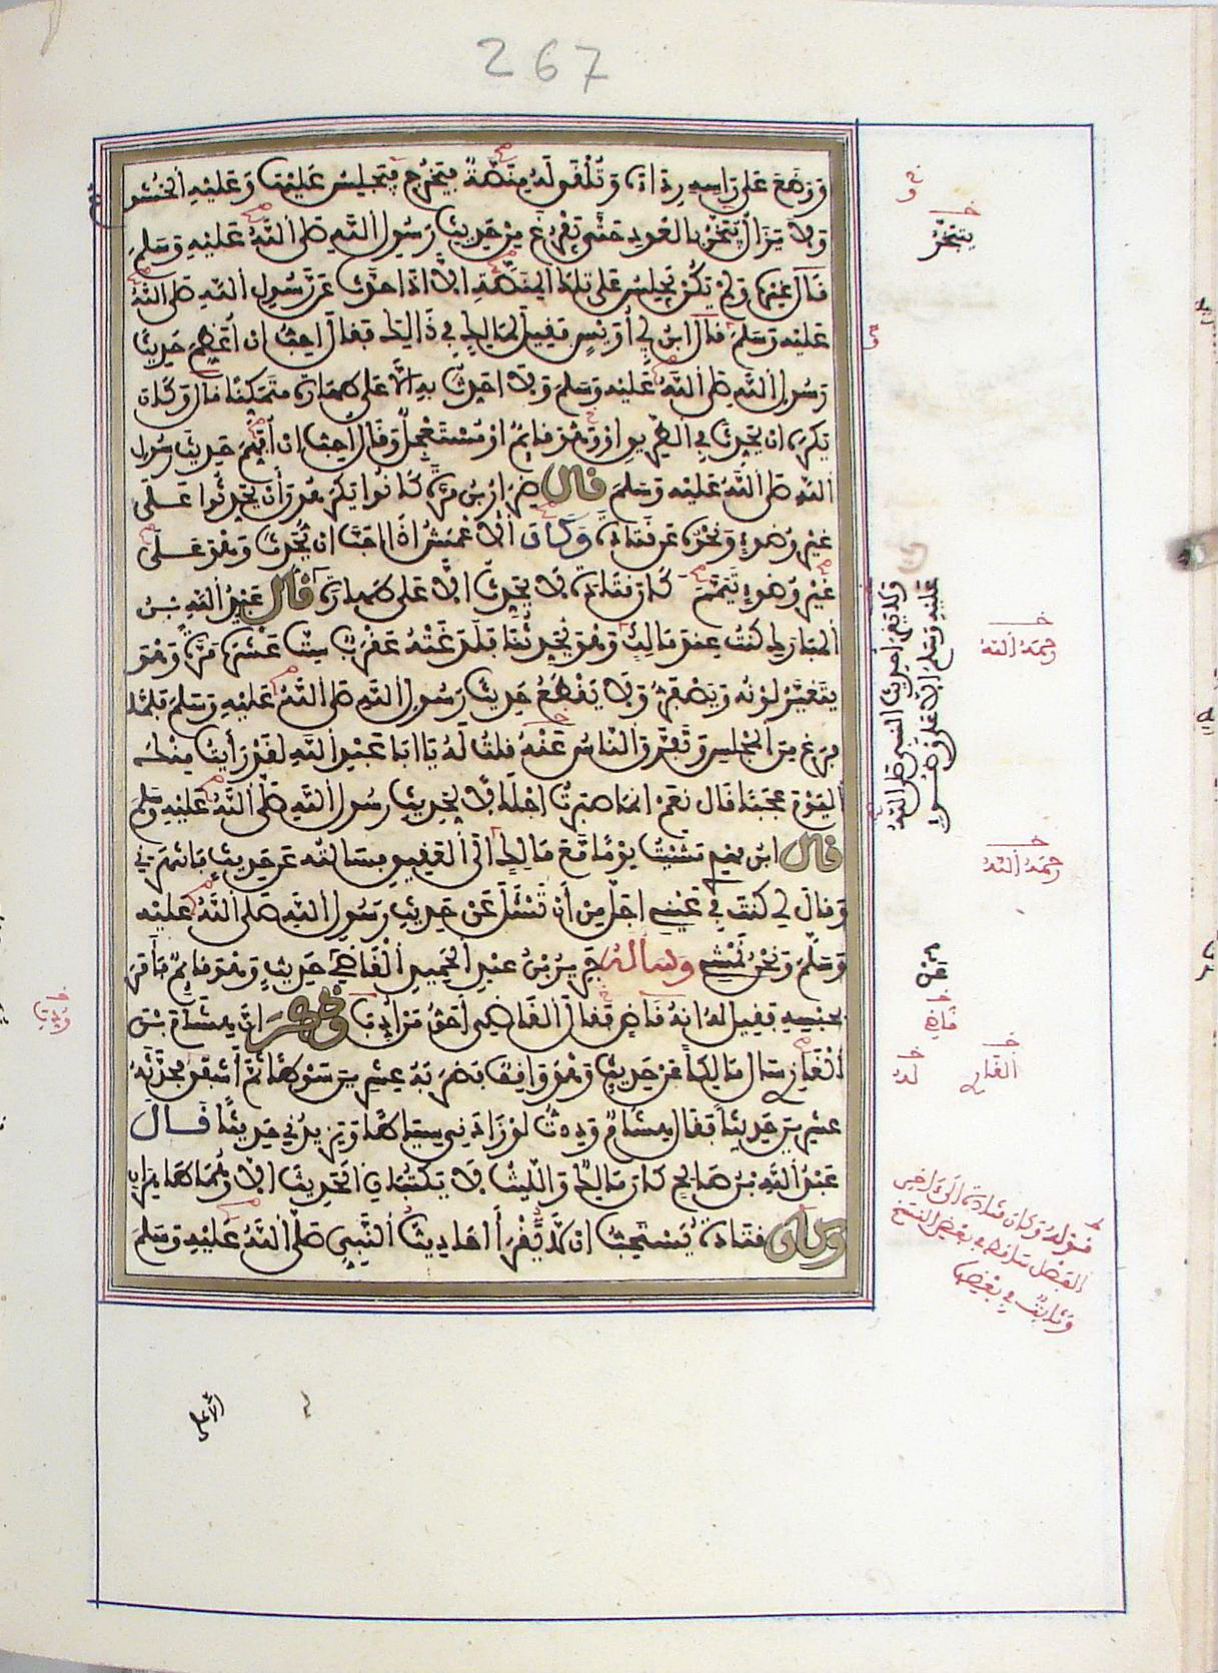 267
ووضع على رأسه رداءه وتلقى له منصة فيخرج فيجلس عليها وعليه الخشوع
ولا يزال يتبخر بالعود حتى يفرغ من حديث رسول الله صلى الله عليه وسلم
قال غيره ولم يكن يجلس على تلك المنصة الا اذا حدث عن رسول الله صلى الله
عليه وسلم قال ابن أبي أويس فقيل لمالك في ذالك فقال أحب ان أعظم حديث
رسول الله صلى الله عليه وسلم ولا احدث به الا على طهارة متمكنا قال وكان
يكره ان يحدث في الطريق او وهو قائم او مستعجل وقال أحب ان أفهم حديث رسول
الله صلى الله عليه وسلم قال ضرار بن مرة كانوا يكرهون أن يحدثوا على
غير وضوء ونحوه عن قتادة وكان الأعمش اذا احب ان يحدث وهو على
غير وضوء تيمم كان قتادة لا يحدث الا على طهارة قال عبد الله بن
المبارك كنت عند مالك وهو يحدثنا فلدغته عقرب ست عشرة مرة وهو
يتغير لونه ويصفر ولا يقطع حديث رسول الله صلى الله عليه وسلم فلما
فرغ من المجلس وتفرق الناس عنه قلت له يا ابا عبد الله لقد رأيت منك
اليوم عجبا قال نعم انما صبرت اجلالا لحديث رسول الله صلى الله عليه وسلم
قال ابن مهدي مشيت يوما مع مالك الى العقيق فسالته عن حديث فانتهرني
وقال لي كنت في عيني اجل من أن تسئل عن حديث رسول الله صلى الله عليه
وسلم ونحن نمشي وساله جرير بن عبد الحميد القاضي عن حديث وهو قائم فأمر
بحبسه فقيل له انه قاض فقال القاضي أحق من أدب وذكر ان هشام بن
الغاز سال مالكا عن حديث وهو واقف فضربه عشرين سوطا ثم أشفق فحدثه
عشرين حديثا فقال هشام وددت لو زادني سياطا ويزيدني حديثا قال
عبد الله بن صالح كان مالك والليث لا يكتبان الحديث الا وهما طاهران
وكان قتادة يستحب ان لا يقرأ احاديث النبي صلى الله عليه وسلم
يتبخر
ولا يقرأ حديث النبي صلى الله
عليه وسلم الا على وضوء
رحمه الله
رحمه الله
قاض
الغازي
له
قوله وكان قتادة الى اخر
الفصل ساقط في بعض النسخ
وثابت في بعضها
الا على